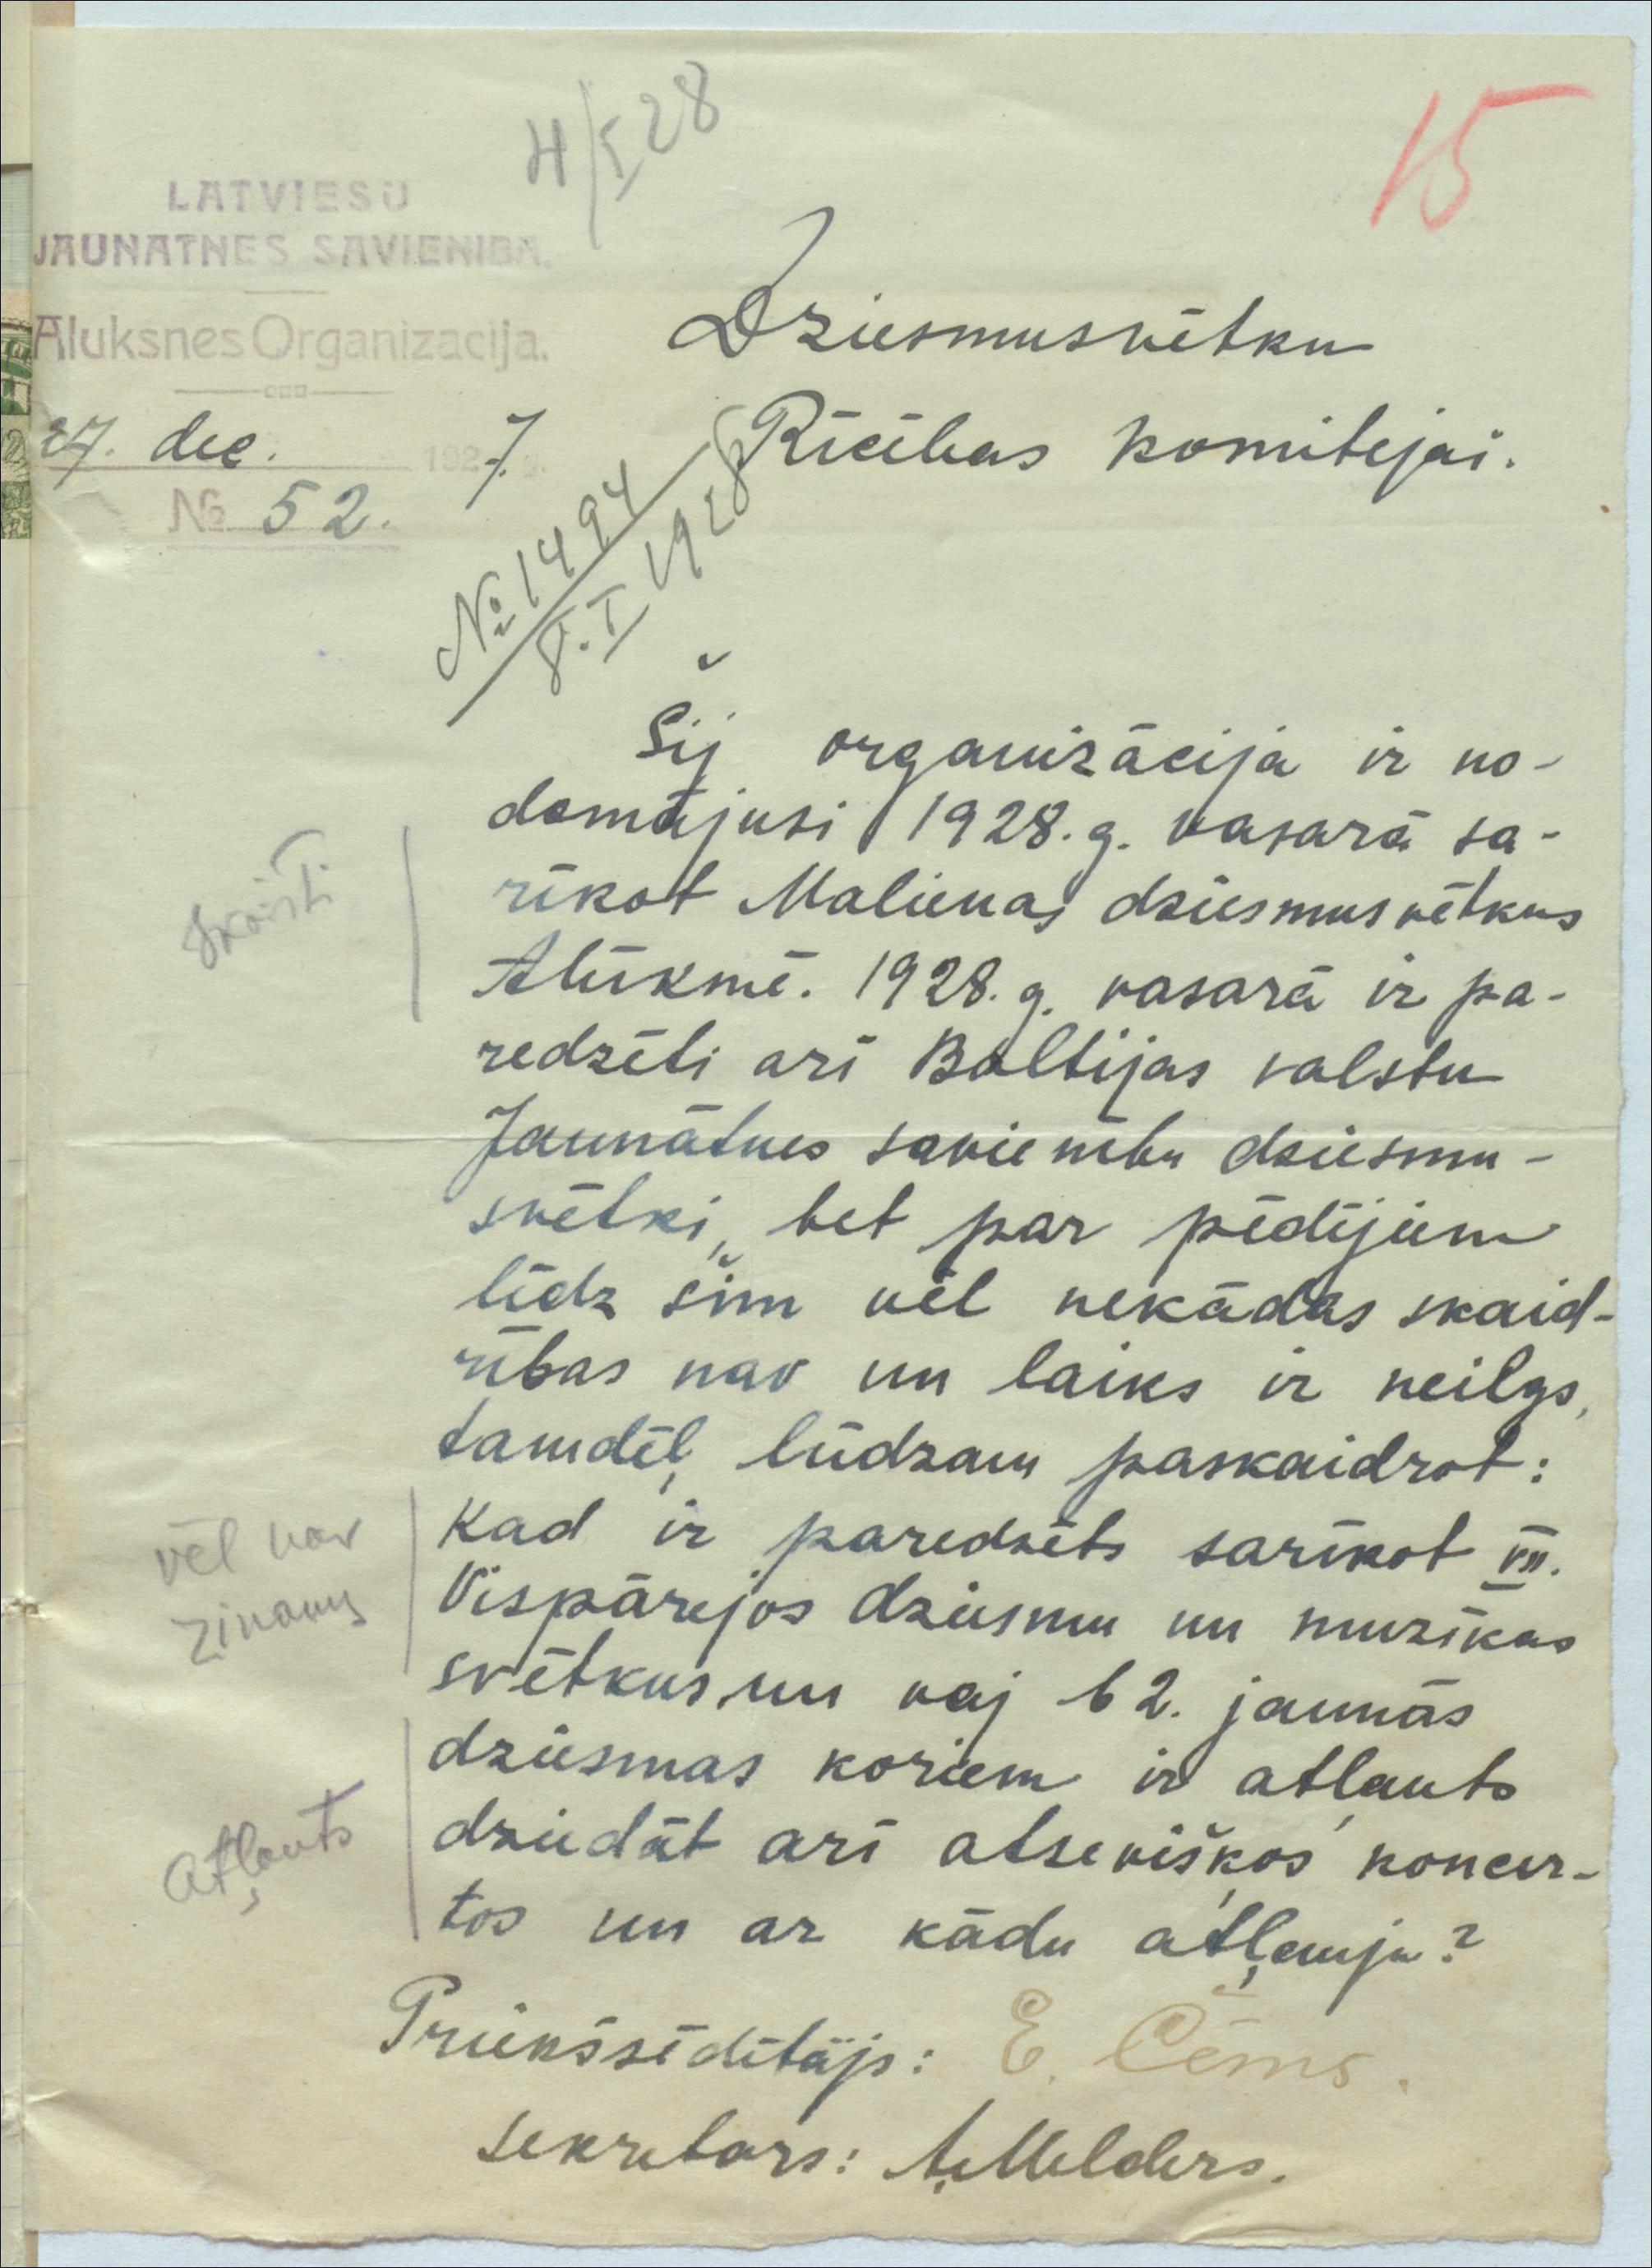 4/I 28
15
LATVIESU
JAUNATNES SAVIENIBA.
Aluksnes Organizacija.
27. dec. 1927.g.
№ 52.
Dziesmusvētku
Rīcības komitejai.
№ 1494
8.I 1928
Šij organizācija ir no-
domājusi 1928.g. vasarā sa-
rīkot Malienas dziesmusvētkus
Alūksnē. 1928.g. vasarā ir pa-
redzēti arī Baltijas valstu
Jaunātnes savienību dziesmu-
svētki, bet par pēdējiem
līdz šim vēl nekādas skaid-
rības nav un laiks ir neilgs,
tamdēļ lūdzam paskaidrot:
Kad ir paredzēts sarīkot VII.
Vispārejos dziesmu un muzīkas
svētkus, un vaj 62. jaunās
dziesmas koriem ir atļauts
dziedāt arī atsevišķos koncer-
tos un ar kādu atļauju?
Priekšsēdētājs: E. Cēms.
sekretars: A. Melders.
vēl nav
zinams
Atļauts